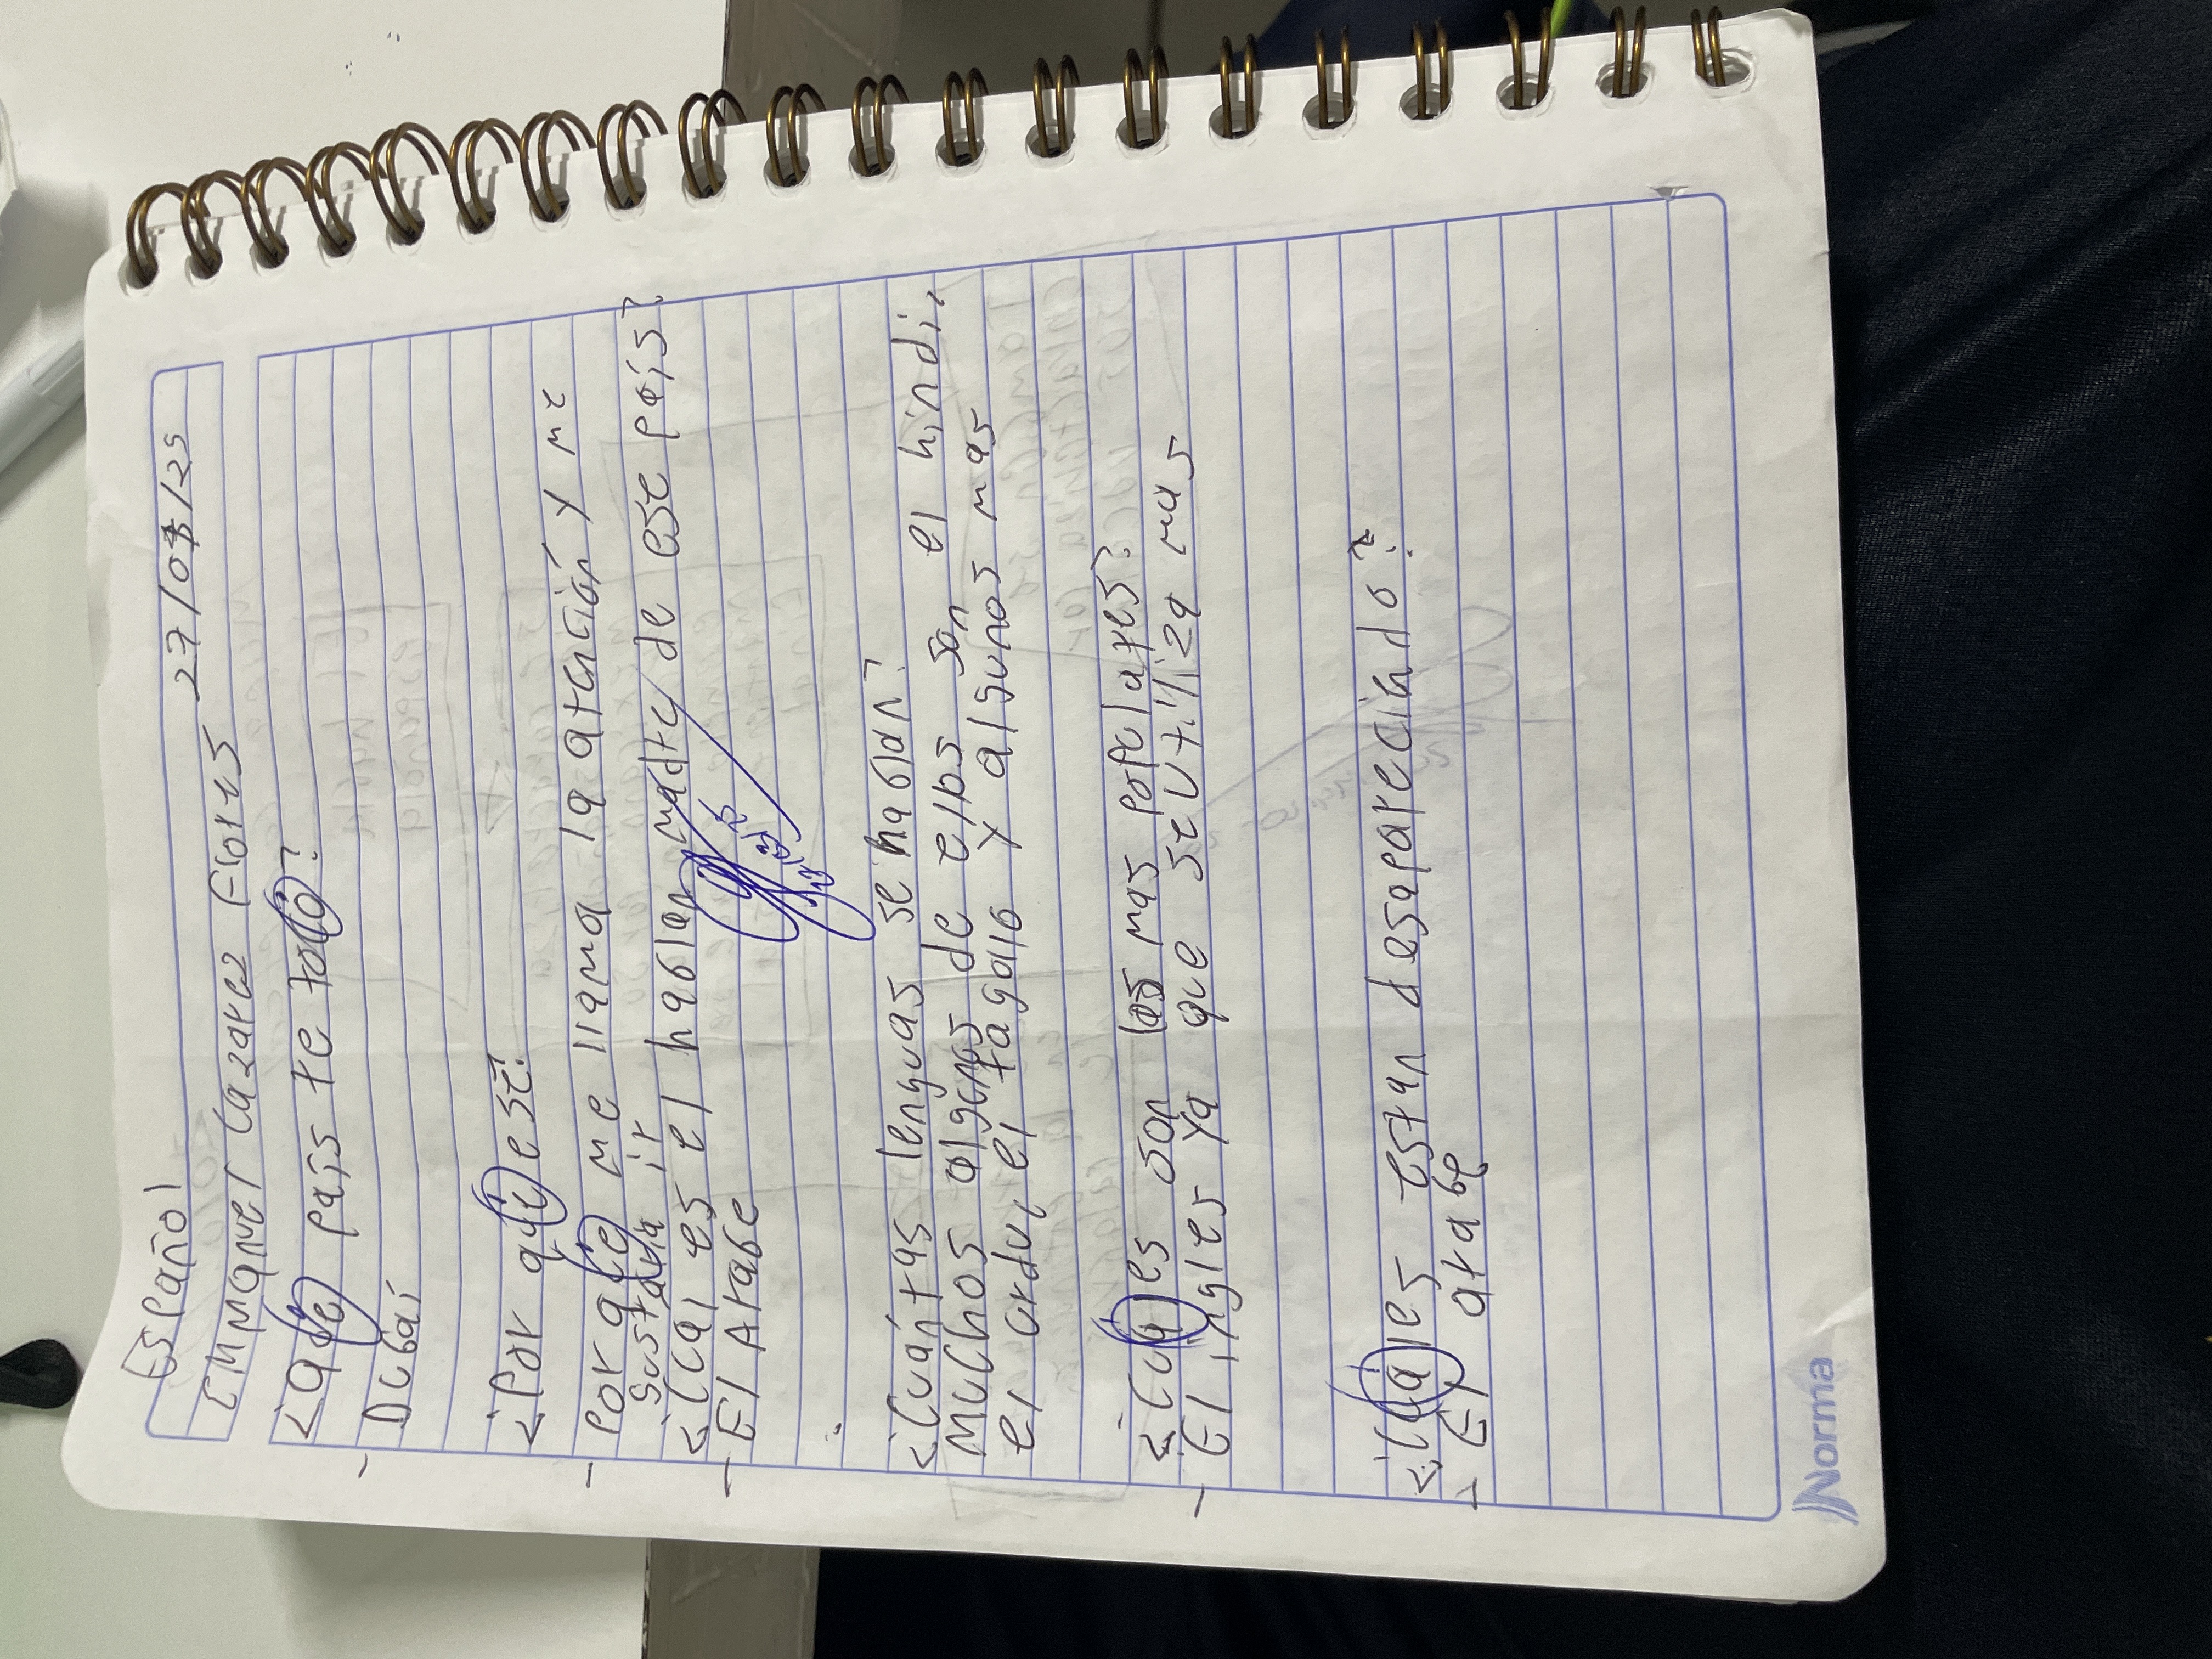 Español
Emmanuel Cazarez Flores 27/08/25
¿Que país te tocó?
- Dubaí
¿Por que ese?
- Por que me llama la atención y me
gustaria ir
¿Cual es el hablan madre de ese país?
- El Arabe
¿Cuántas lenguas se hablan?
Muchos algunos de ellos son el hindi,
el urdu, el tagalo y algunos mas
¿Cuales son las mas populares?
- El ingles ya que se utiliza mas
¿Cuales estan desapareciendo?
- El arabe
Norma